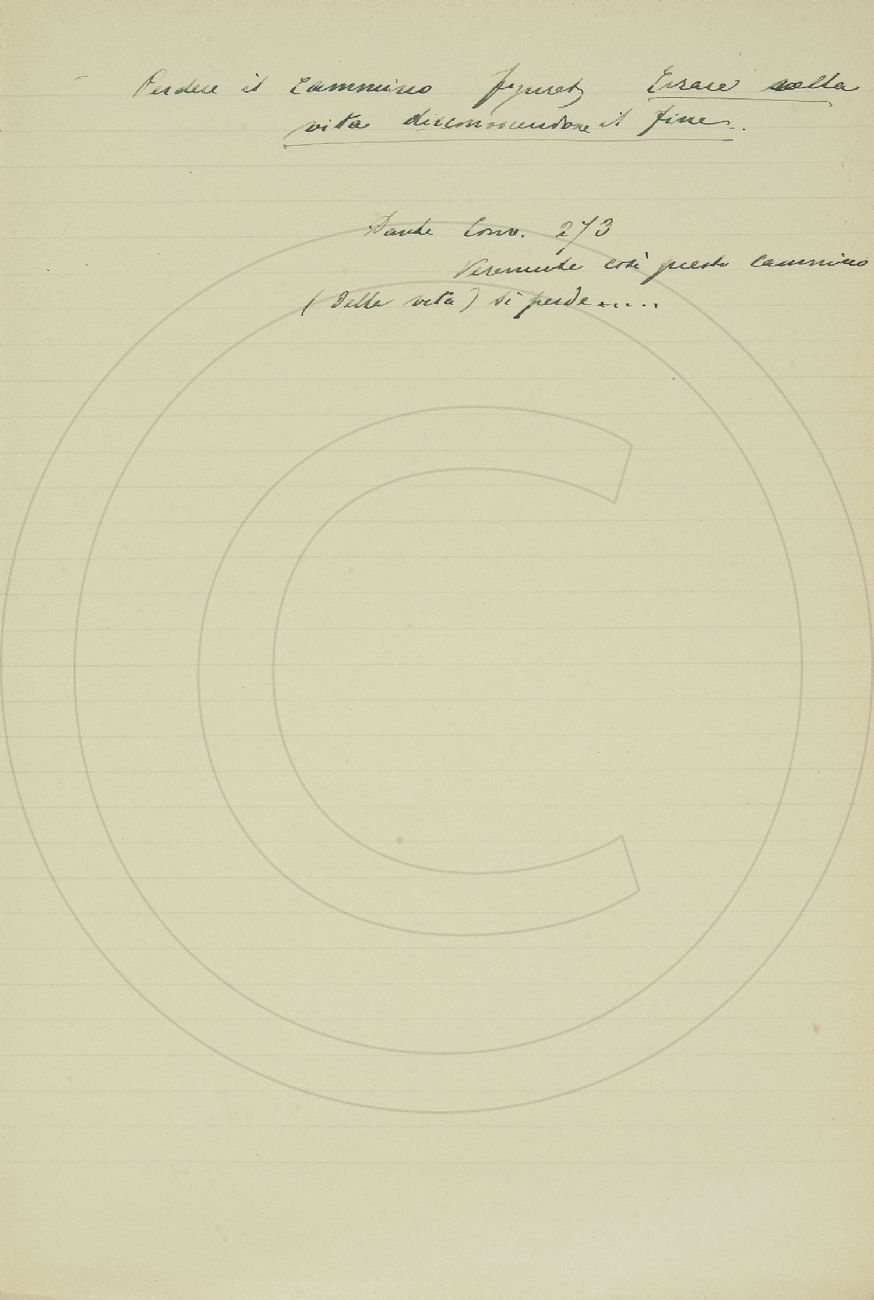 Perdere il cammino figurat Errare nella
vita disconoscendone il fine.
Dante Conv. 273
Veramente così questo cammino
(della vita) si perde.....